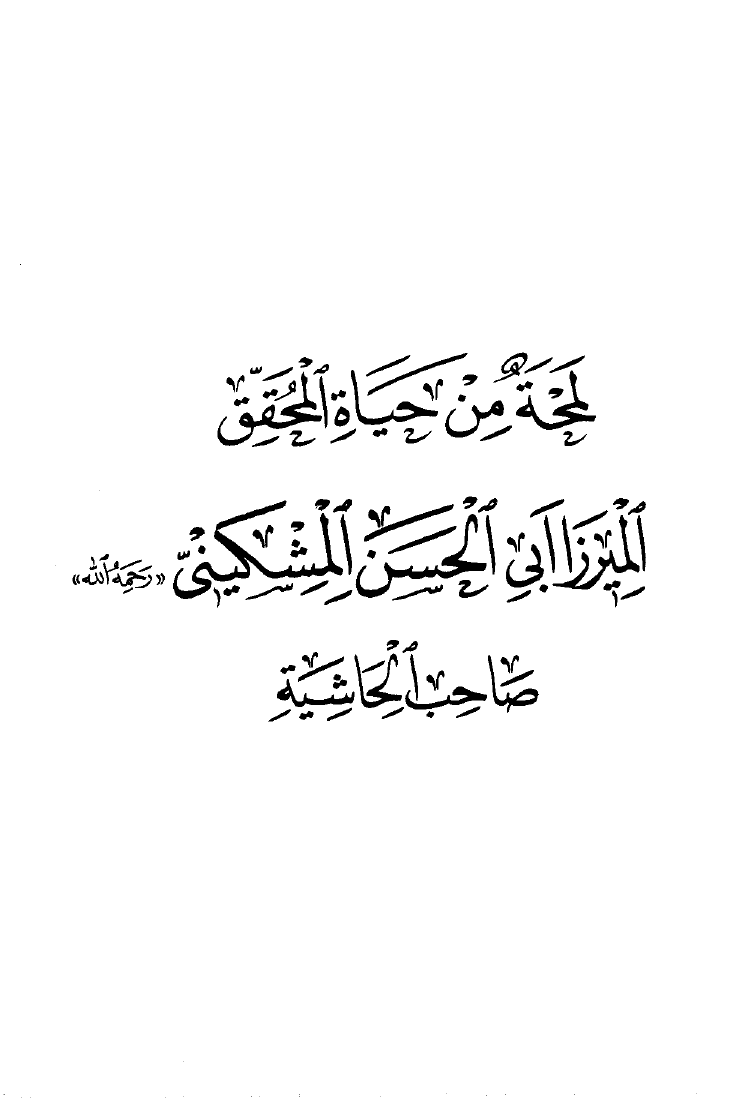 لَمْحَةٌ مِنْ حَيَاةِ ٱلْمُحَقِّقِ
ٱلْمِيْرزَا ابِي ٱلْحَسَنِ ٱلْمِشْكِينيّ «رَحِمَهُ ٱللّٰه»
صَاحِبِ ٱلْحَاشِيَةِ